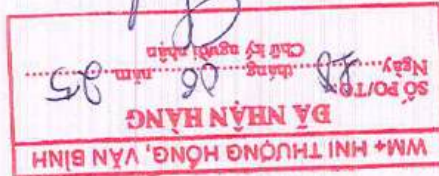 WM+ HNI THƯỢNG HỒNG, VĂN BÌNH
ĐÃ NHẬN HÀNG
SỐ PO/TO
Ngày tháng 06 năm 25
Chữ ký người nhận